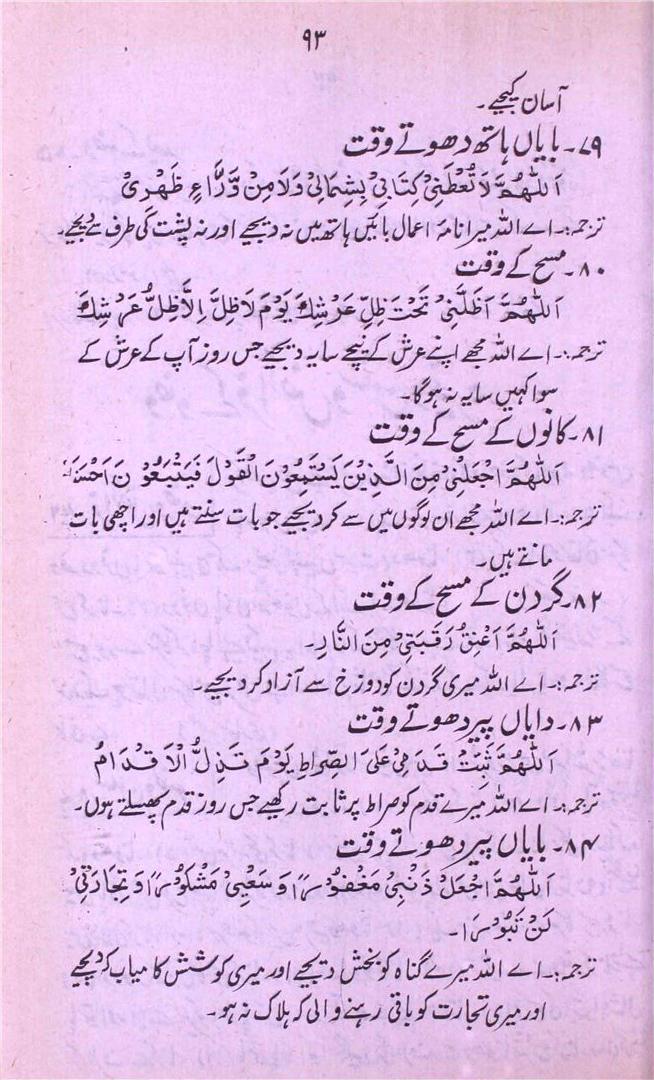 ۹۳
آسان کیجیے۔
۷۹۔ بایاں ہاتھ دھوتے وقت
اَللّٰهُمَّ لَا تُعْطِنِیْ كِتَابِیْ بِشِمَالِیْ وَلَا مِنْ وَّرَآءِ ظَهْرِیْ
ترجمہ:۔ اے اللہ میرا نامۂ اعمال بائیں ہاتھ میں نہ دیجیے اور نہ پشت کی طرف سے دیجیے۔
۸۰۔ مسح کے وقت
اَللّٰهُمَّ اَظِلَّنِیْ تَحْتَ ظِلِّ عَرْشِكَ يَوْمَ لَا ظِلَّ اِلَّا ظِلُّ عَرْشِكَ
ترجمہ:۔ اے اللہ مجھے اپنے عرش کے نیچے سایہ دیجیے جس روز آپ کے عرش کے
سوا کہیں سایہ نہ ہوگا۔
۸۱۔ کانوں کے مسح کے وقت
اَللّٰهُمَّ اجْعَلْنِیْ مِنَ الَّذِيْنَ يَسْتَمِعُوْنَ الْقَوْلَ فَيَتَّبِعُوْنَ اَحْسَنَهٗ
ترجمہ:۔ اے اللہ مجھے ان لوگوں میں سے کر دیجیے جو بات سنتے ہیں اور اچھی بات
مانتے ہیں۔
۸۲۔ گردن کے مسح کے وقت
اَللّٰهُمَّ اَعْتِقْ رَقَبَتِیْ مِنَ النَّارِ۔
ترجمہ:۔ اے اللہ میری گردن کو دوزخ سے آزاد کر دیجیے۔
۸۳۔ دایاں پیر دھوتے وقت
اَللّٰهُمَّ ثَبِّتْ قَدَمِیْ عَلَی الصِّرَاطِ يَوْمَ تَذِلُّ الْاَقْدَامُ
ترجمہ:۔ اے اللہ میرے قدم کو صراط پر ثابت رکھیے جس روز قدم پھسلتے ہوں۔
۸۴۔ بایاں پیر دھوتے وقت
اَللّٰهُمَّ اجْعَلْ ذَنْبِیْ مَغْفُوْرًا وَ سَعْیِیْ مَشْكُوْرًا وَ تِجَارَتِیْ
لَنْ تَبُوْرَا۔
ترجمہ:۔ اے اللہ میرے گناہ کو بخش دیجیے اور میری کوشش کامیاب کر دیجیے
اور میری تجارت کو باقی رہنے والی کہ ہلاک نہ ہو۔